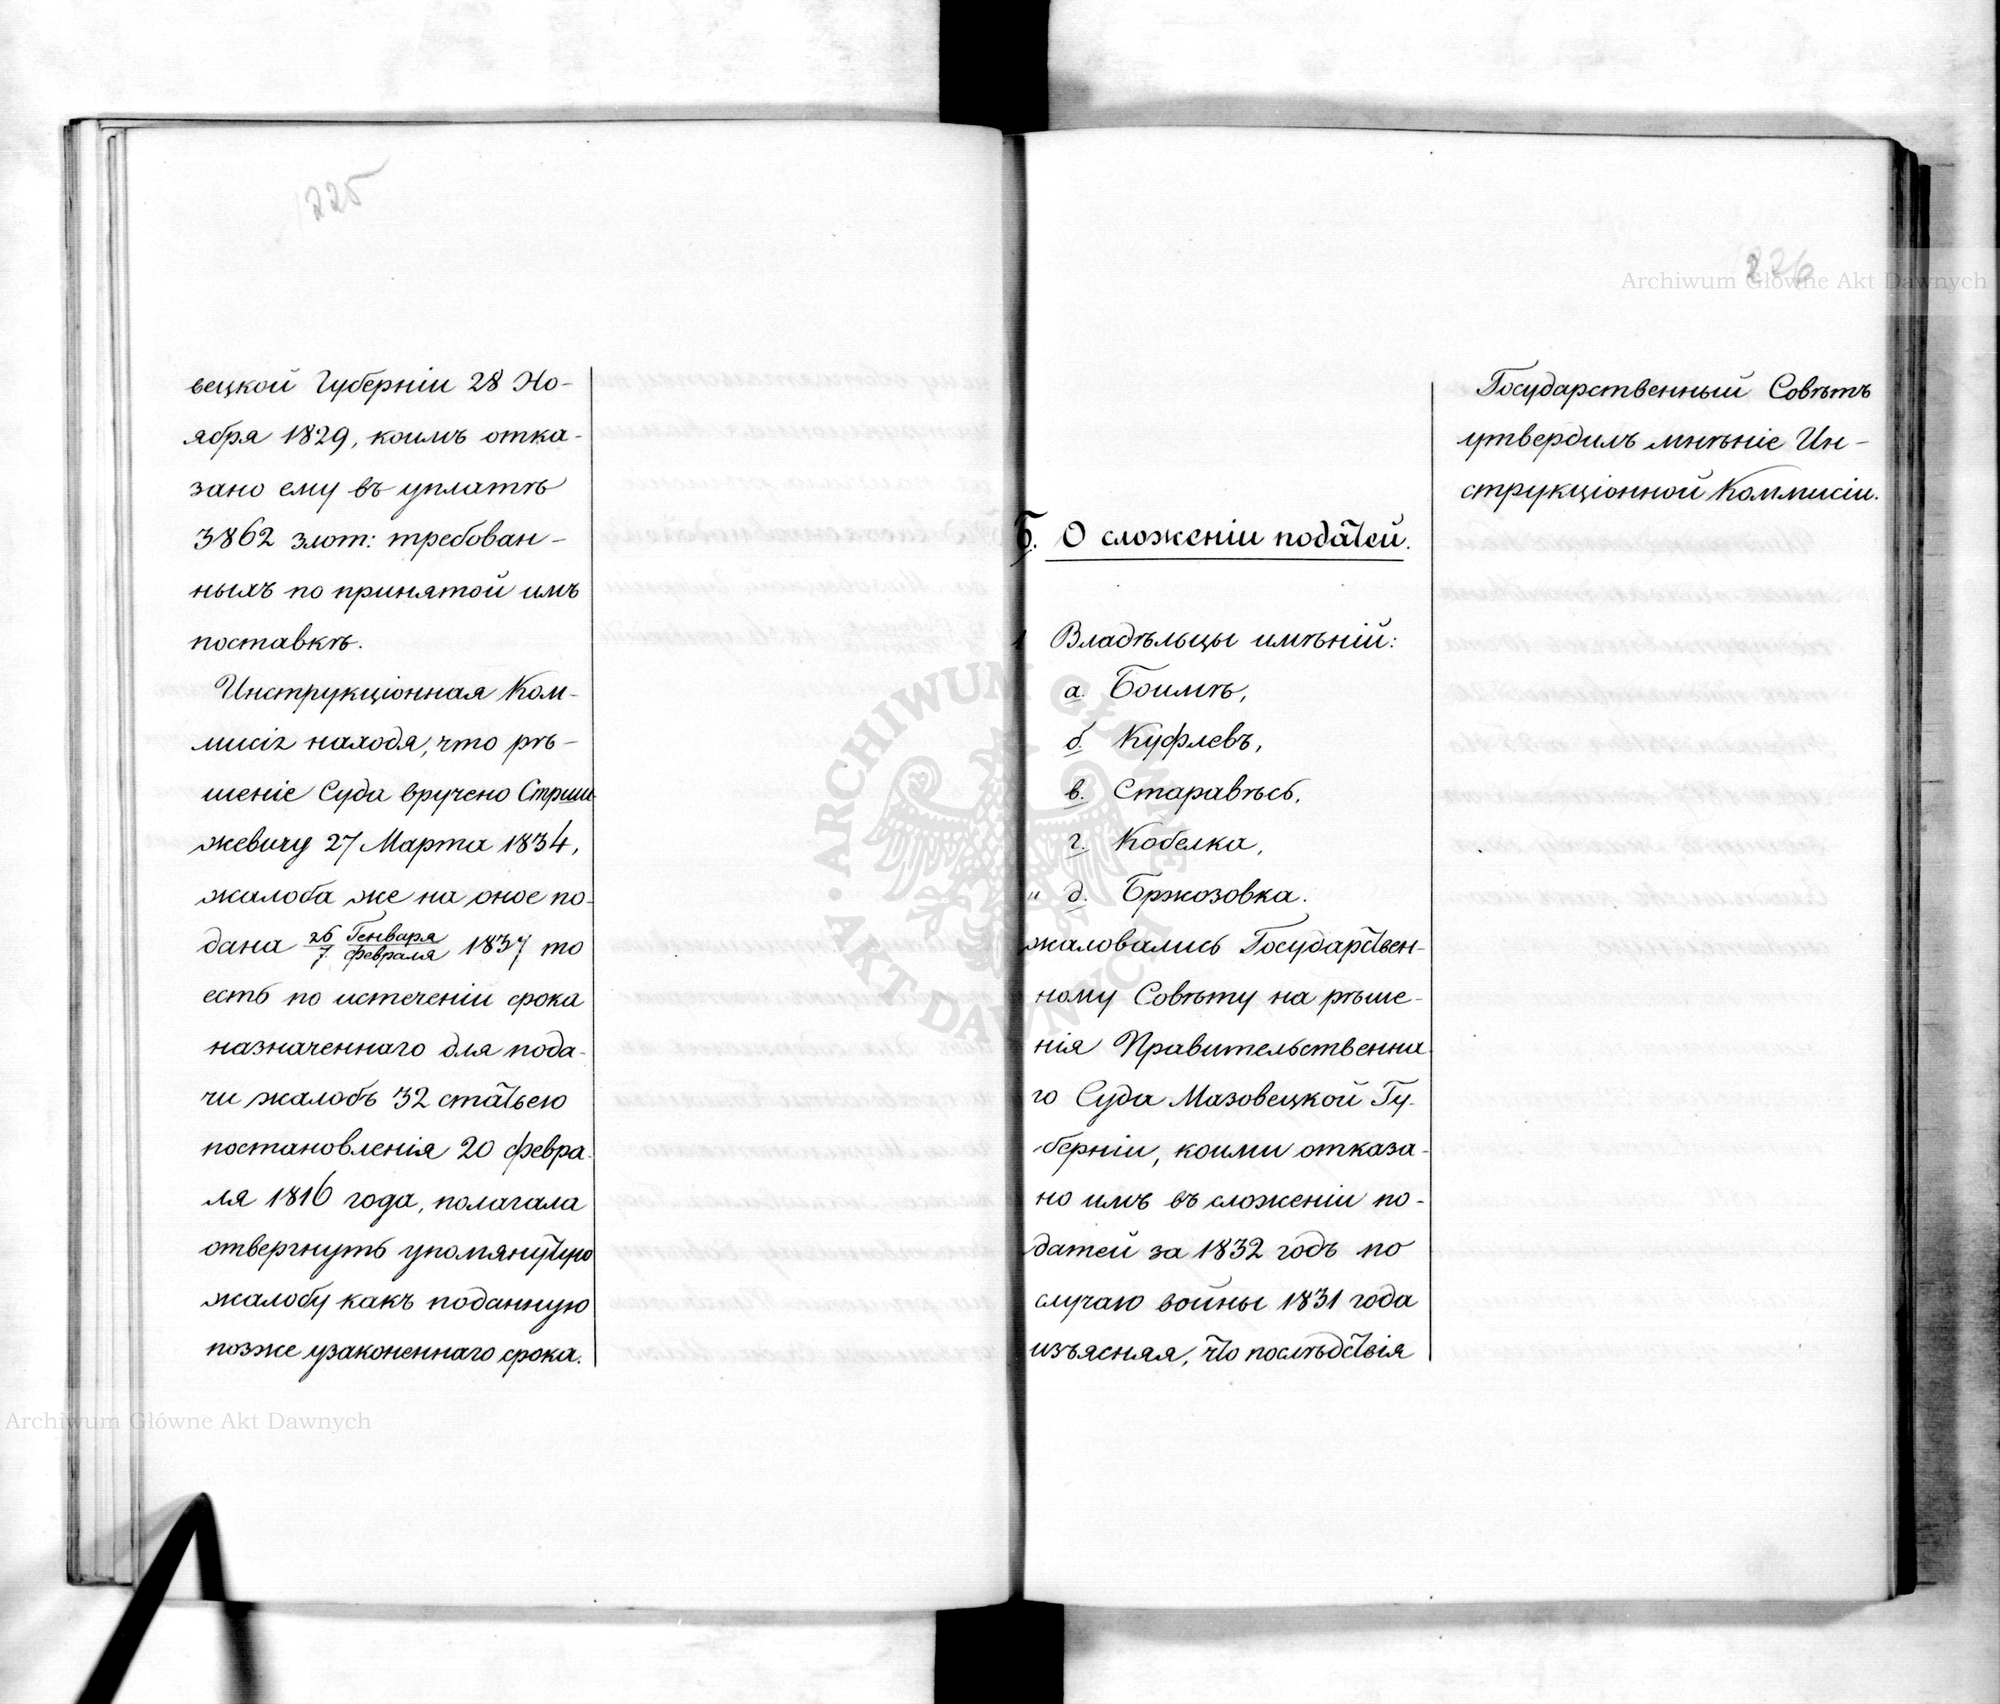 225
вецкой Губерніи 28 Но-
ября 1829, коимъ отка-
зано ему въ уплатѣ
3862 злот: требован-
ныхъ по принятой имъ
поставкѣ.
Инструкціонная Ком-
мисія находя, что рѣ-
шеніе Суда вручено Стржи-
жевичу 27 Марта 1834,
жалоба же на оное по-
дана 26 Генваря / 7 Февраля 1837 то
есть по истеченіи срока
назначеннаго для пода-
чи жалобъ 32 статьею
постановленія 20 Февра-
ля 1816 года, полагала
отвергнуть упомянутую
жалобу какъ поданную
позже узаконеннаго срока.
226
Б. О сложеніи податей.
1 Владѣльцы имѣній:
а. Боимѣ,
б. Куфлевъ,
в. Старавѣсь,
г. Кобелка,
" д. Бржозовка.
жаловались Государствен-
ному Совѣту на рѣше-
нія Правительственна-
го Суда Мазовецкой Гу-
берніи, коими отказа-
но имъ въ сложеніи по-
датей за 1832 годъ по
случаю войны 1831 года
изъясняя, что послѣдствія
Государственный Совѣтъ
утвердилъ мнѣніе Ин-
струкціонной Коммисіи.
Archiwum Główne Akt Dawnych
ARCHIWUM GŁÓWNE AKT DAWNYCH
Archiwum Główne Akt Dawnych